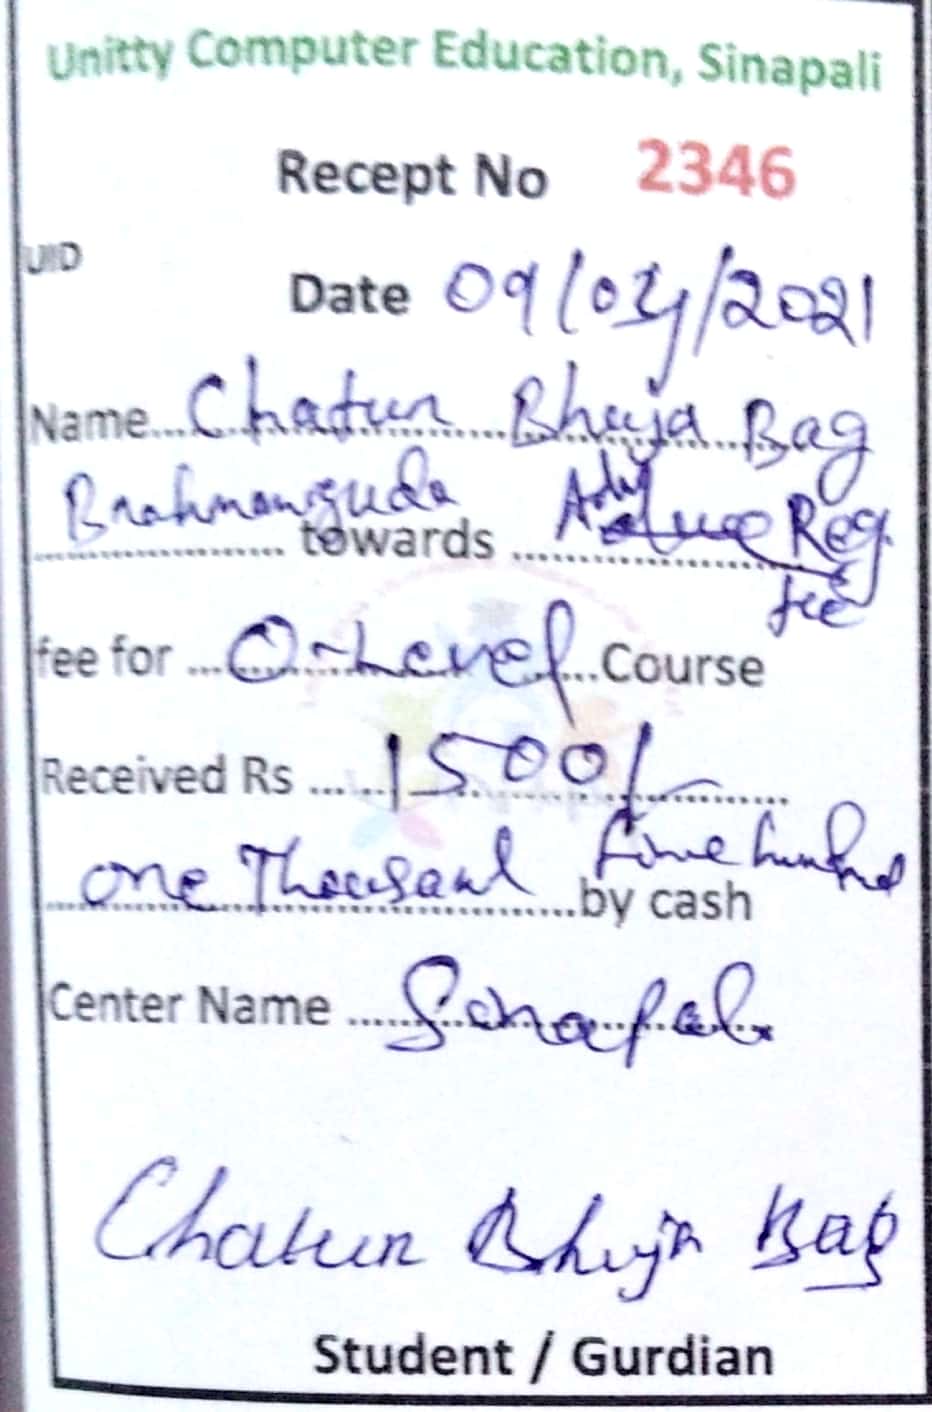 Unitty Computer Education, Sinapali
Recept No 2346
UID
Date 09/03/2021
Name...Chatur Bhuja Bag
Brahmanguda towards ... Reg. fee
fee for ...O-Level...Course
Received Rs ...1500/-
one Thousand five hundred by cash
Center Name ...Sinapali
Chatur Bhuja Bag
Student / Gurdian